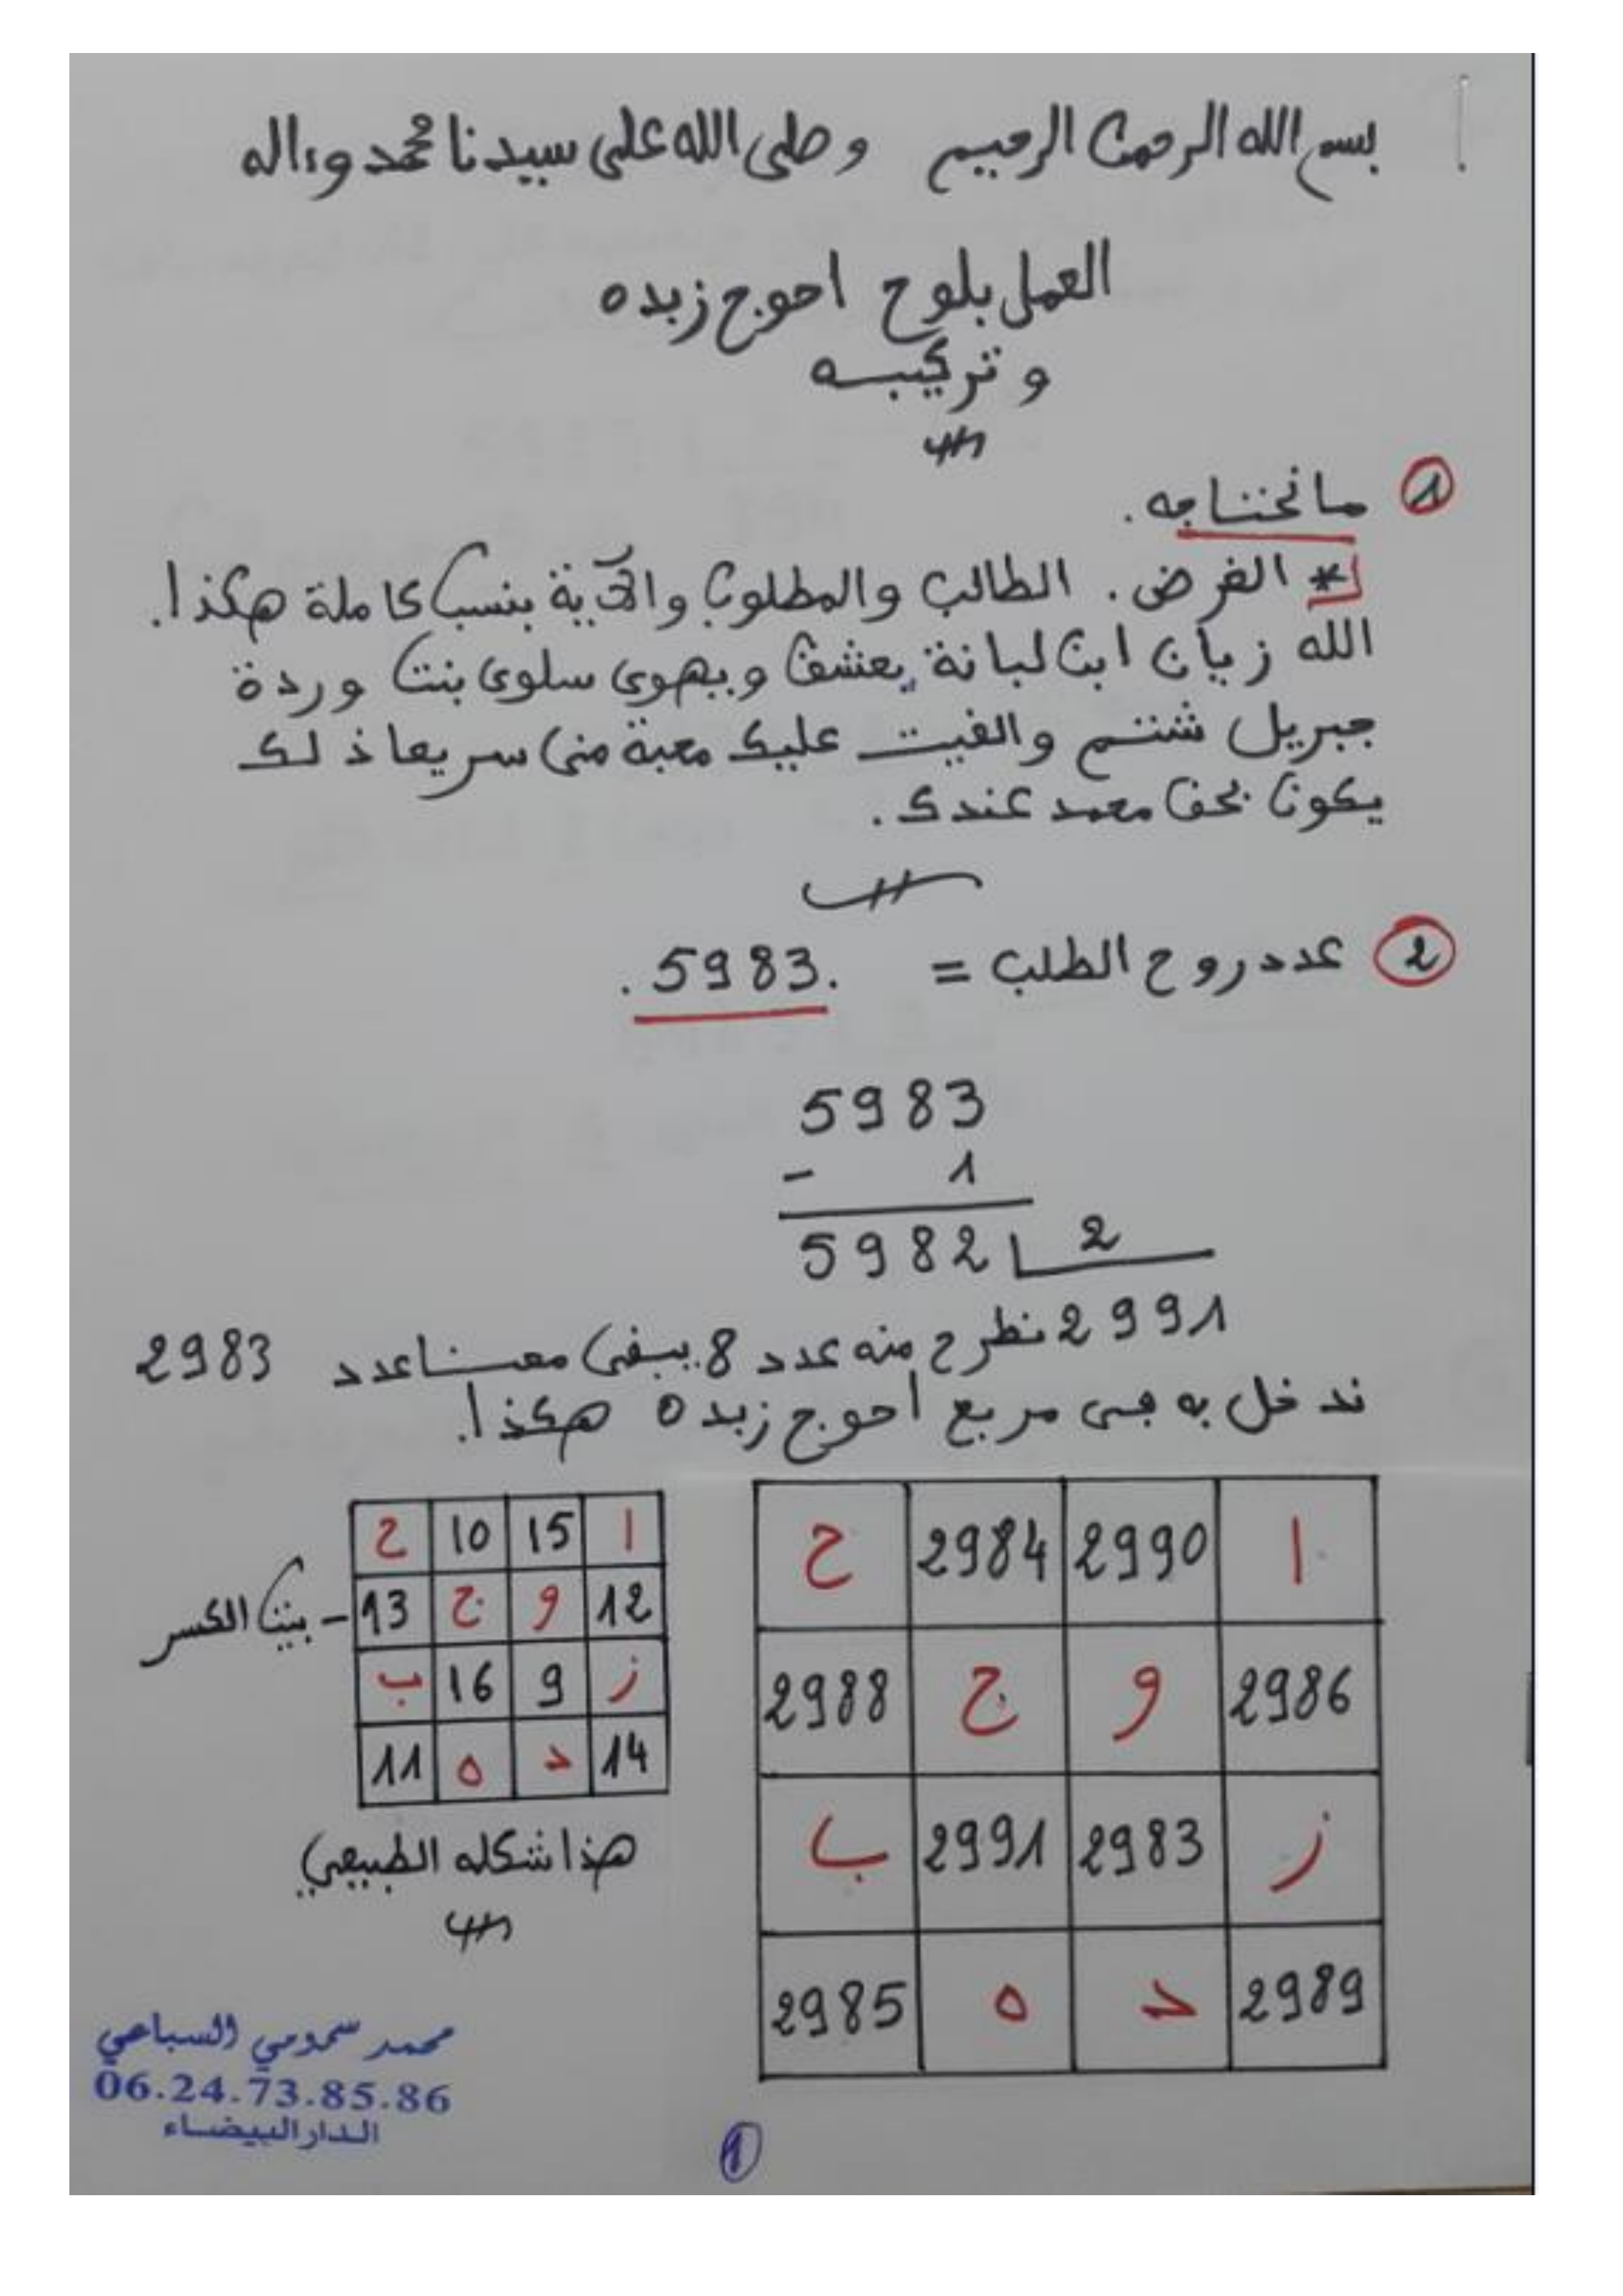 بسم الله الرحمن الرحيم وصلى الله على سيدنا محمد وءاله
العمل بلوح احوج زبده
و تركيبه
1 ما نحتاجه.
* الغرض. الطالب والمطلوب والآية بنسب كاملة هكذا.
الله زيان ابن لبانة يعشق ويهوى سلوى بنت وردة
جبريل شتم والقيت عليك محبة مني سريعا ذلك
يكون بحق محمد عندك.
2 عدد روح الطلب = .5983.
5983
- 1
5982 2
2991 نطرح منه عدد 8. يبقى معنا عدد 2983
ندخل به في مربع احوج زبده هكذا.
ا 2990 2984 ح
2986 و ج 2988
ز 2983 2991 ب
2989 د ه 2985
ا 15 10 ح
12 و ج 13 - بيت الكسر
ز 9 16 ب
14 د ه 11
هذا شكله الطبيعي
محمد سمومي السباعي
06.24.73.85.86
الدار البيضاء
1